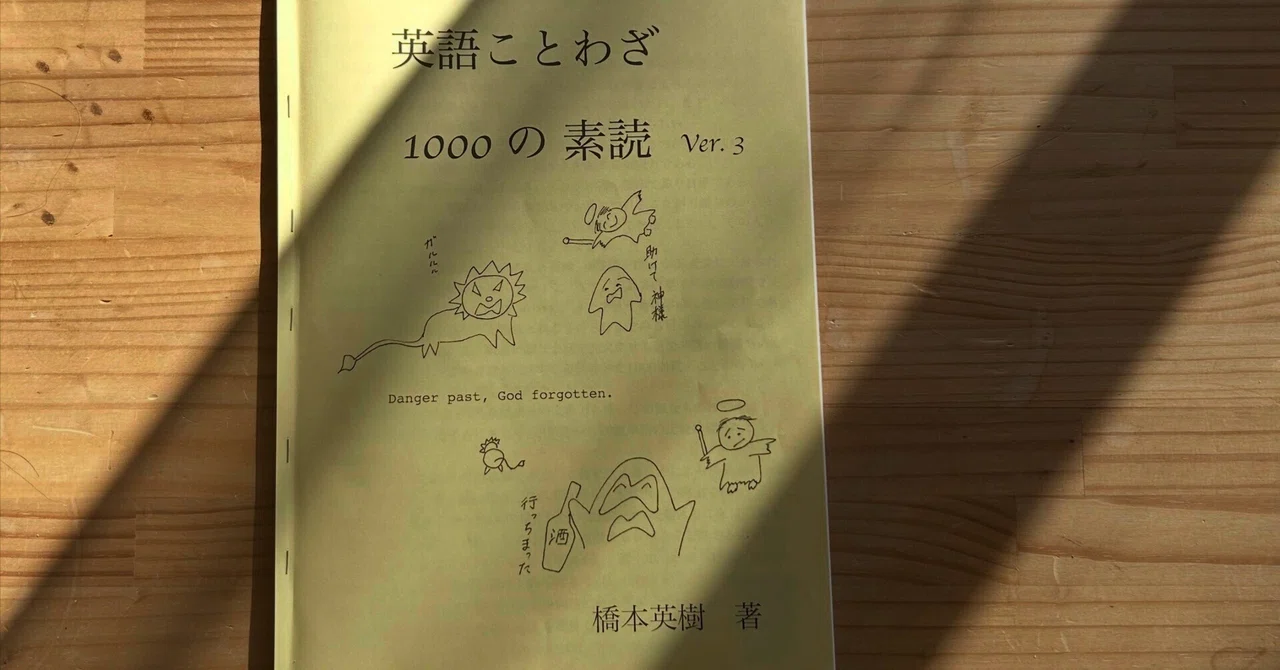 英語ことわざ
1000 の 素読 Ver. 3
ガルルル
助けて 神様
Danger past, God forgotten.
行っちまった
酒
橋本英樹 著